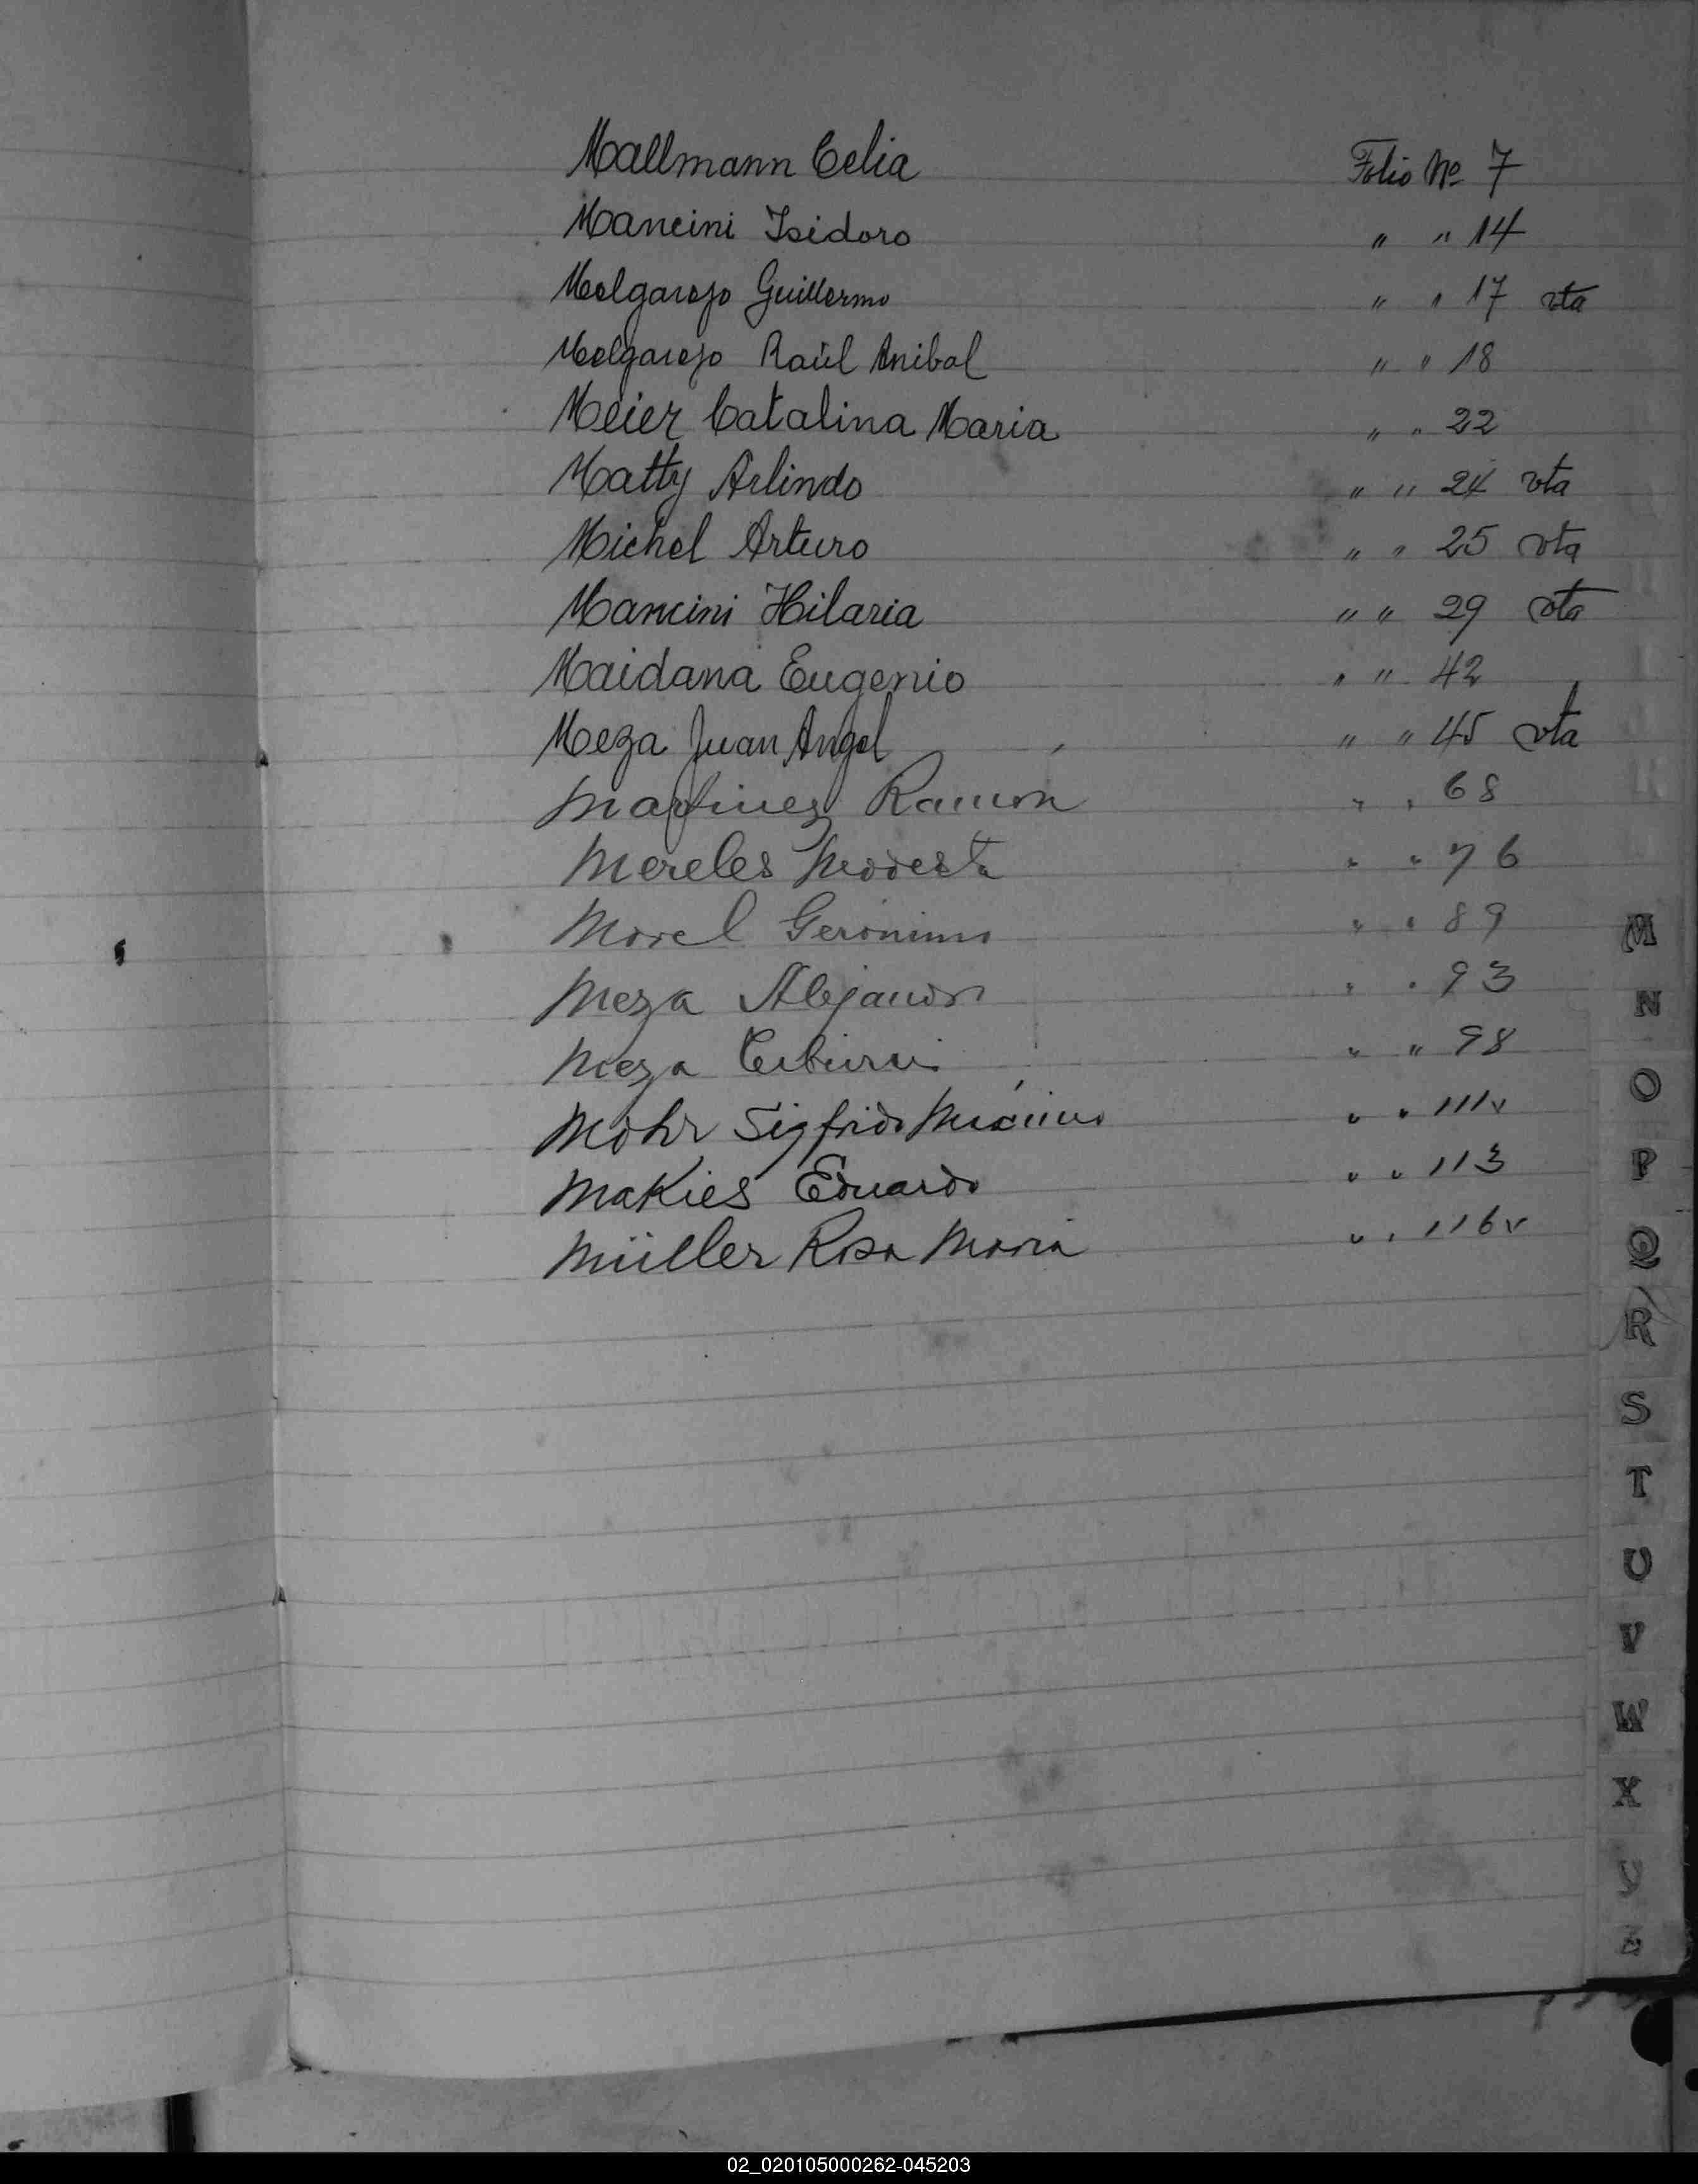 Mallmann Celia Folio Nº 7
Mancini Isidoro " " 14
Melgarejo Guillermo " " 17 vta
Melgarejo Raúl Anibal " " 18
Meier Catalina Maria " " 22
Matty Arlindo " " 24 vta
Michel Arturo " " 25 vta
Mancini Hilaria " " 29 vta
Maidana Eugenio " " 42
Meza Juan Angel " " 45 vta
Martinez Ramón " " 68
Mereles Modesta " " 76
Morel Gerónimo " " 89
Meza Alejandro " " 93
Meza " " 98
Mohr Sigfrido Máximo " " 111v
Makies Eduardo " " 113
Müller Rosa Maria " " 116v
M
N
O
P
Q
R
S
T
U
V
W
X
Y
Z
02_020105000262-045203